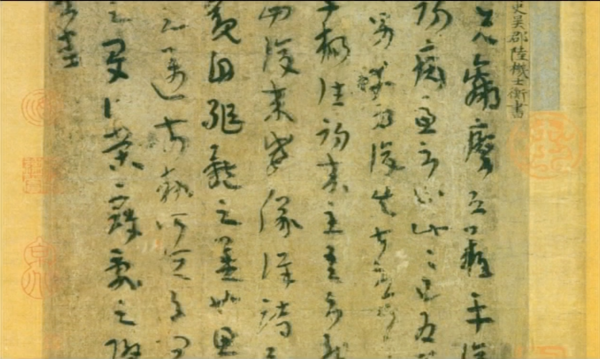 史吳郡陸機士衡書
先羸瘵恐難平復
初病慮不止此此已為
男幸為復失前憂
子楊往初來主吾不能
西復來威儀詳跱
觀自軀體之美也思
量之邁前執所恒有
之夏伯榮寇亂之際
不悉